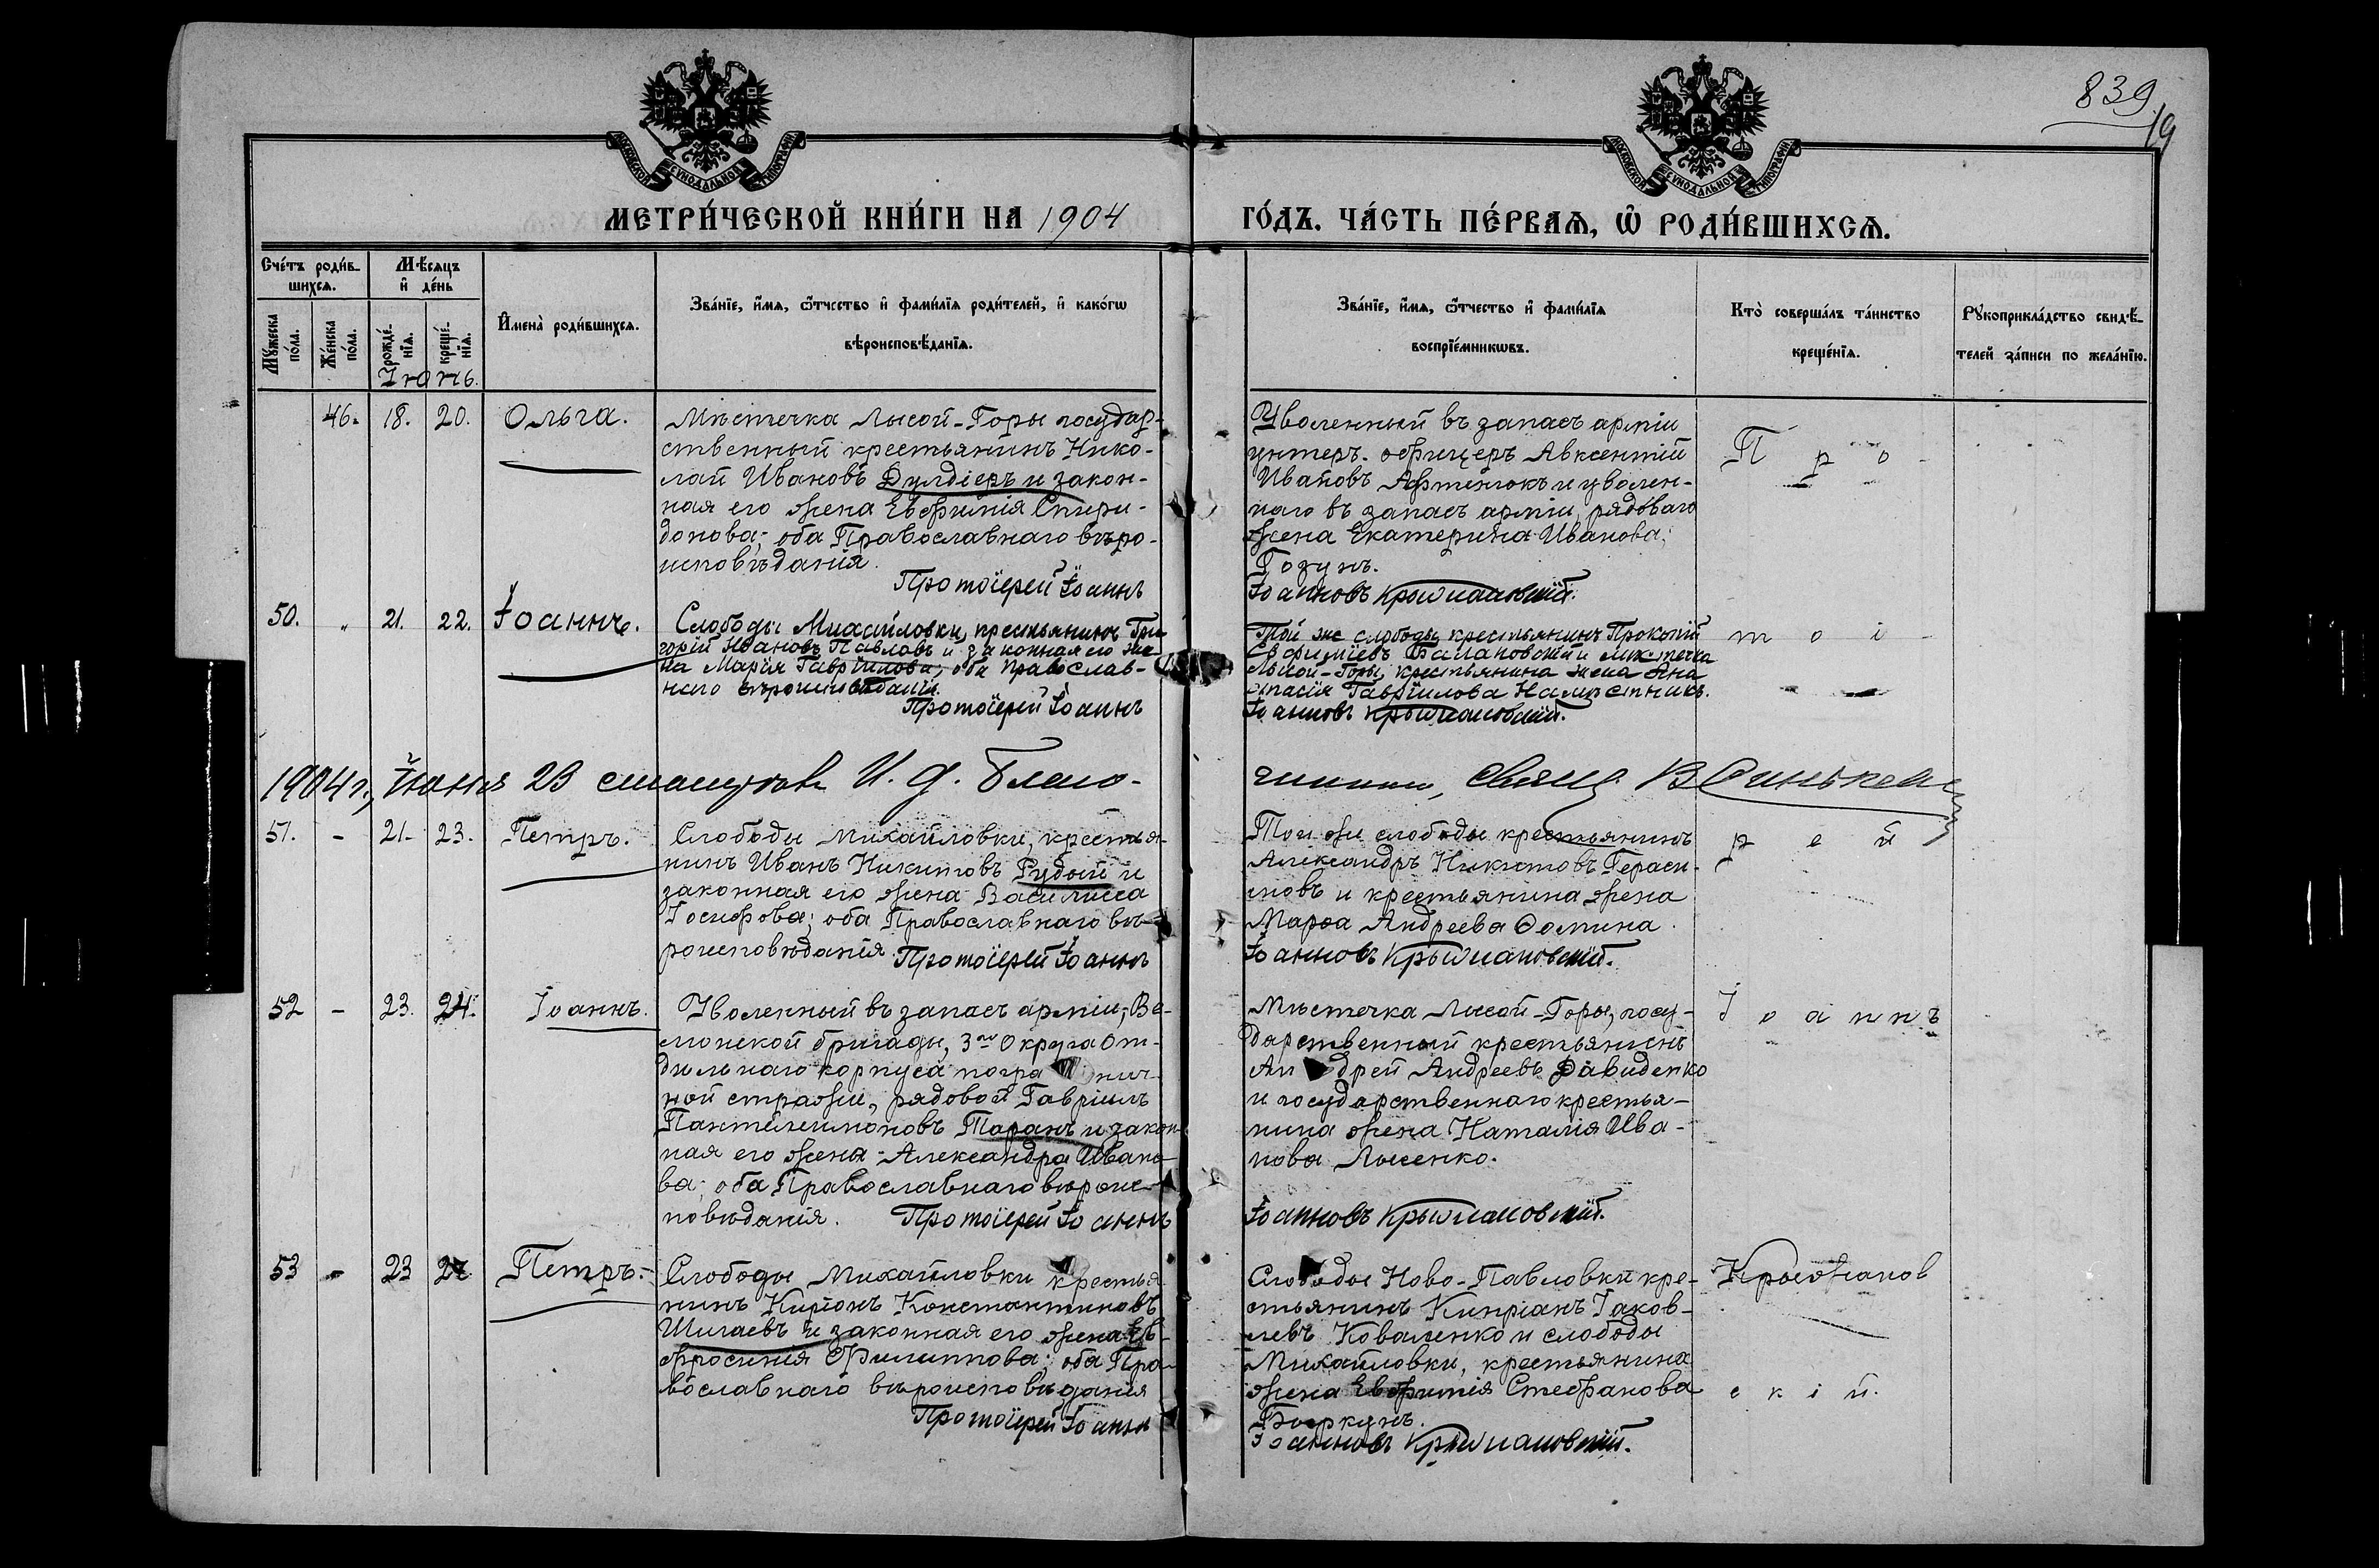 839
19
МОСКОВСКОЙ СѴНОДАЛЬНОЙ ТИПОГРАФІИ
МОСКОВСКОЙ СѴНОДАЛЬНОЙ ТИПОГРАФІИ
МЕТРИ́ЧЕСКОЙ КНИ́ГИ НА 1904
ГО́ДЪ. ЧА́СТЬ ПЕ́РВАѦ, Ѽ РОДИ́ВШИХСѦ.
Сче́тъ роди́в-
шихсѧ.
Мѣ́сяцъ
и҆ де́нь
Мꙋ́жеска
по́ла.
Же́нска
по́ла.
рожде́-
нїѧ.
креще́-
нїѧ.
И҆мена̀ роди́вшихсѧ.
Зва́нїе, и҆́мѧ, ѻ҆́тчество и҆ фами́лїѧ роди́телей, и҆ како́гѡ
вѣроисповѣ́данїѧ.
Зва́нїе, и҆́мѧ, ѻ҆́тчество и҆ фами́лїѧ
воспрїе́мникѡвъ.
Кто̀ соверша́лъ та́инство
креще́нїѧ.
Рꙋкоприкла́дство свидѣ́-
телей за́писи по жела́нїю.
Іюнь.
46. 18. 20. Ольга.
Мѣстечка Лысой-Горы государ-
ственный крестьянинъ Нико-
лай Ивановъ Дулдіеръ и закон-
ная его жена Евфимія Спири-
донова; оба Православнаго вѣро-
исповѣданія.
Протоіерей Іоаннъ
Уволенный въ запасъ арміи
унтеръ-офицеръ Авксентій
Ивановъ Афтенюкъ и уволен-
наго въ запасъ арміи, рядоваго
жена Екатерина Иванова
Гозунъ.
Іоанновъ Крыжановскій.
П р о -
50. " 21. 22. Іоаннъ.
Слободы Михайловки, крестьянинъ Гри-
горій Ивановъ Павловъ и законная его же-
на Марія Гавріилова, оба Православ-
наго вѣроисповѣданія.
Протоіерей Іоаннъ
Той же слободы, крестьянинъ Прокопій
Евфиміевъ Балановскій и мѣстечка
Лысой-Горы, крестьянина жена Ана
стасія Гавріилова Намѣстникъ.
Іоанновъ Крыжановскій.
т о і -
1904 г., Іюня 23 слушалъ И. д. Благо-
51. - 21. 23. Петръ.
Слободы Михайловки, крестья-
нинъ Иванъ Никитовъ Рудой и
законная его жена Василисса
Іосифова; оба Православнаго вѣ-
роисповѣданія. Протоіерей Іоаннъ
Той же слободы крестьянинъ
Александръ Никитовъ Гераси-
мовъ и крестьянина жена
Марѳа Андреева Ѳомина.
Іоанновъ Крыжановскій.
р е й
52 - 23. 24. Іоаннъ.
Уволенный въ запасъ арміи, Ве-
лонской бригады, 3го Округа От-
дѣльнаго корпуса погранич-
ной стражи, рядовой Гавріилъ
Пантелеимоновъ Таранъ и закон-
ная его жена Александра Ивано-
ва; оба Православнаго вѣроис-
повѣданія. Протоіерей Іоаннъ
Мѣстечка Лысой-Горы, госу-
дарственный крестьянинъ
Андрей Андреевъ Давиденко
и государственнаго крестья-
нина жена Наталія Ива-
нова Лысенко.
Іоанновъ Крыжановскій.
І о а н н ъ
53 - 23 Петръ.
Слободы Михайловки крестья
нинъ Киріонъ Константиновъ
Шигаевъ и законная его жена Ев-
фросинія Филиппова; оба Пра-
вославнаго вѣроисповѣданія
Протоіерей Іоаннъ
Слободы Ново-Павловки кре-
стьянинъ Кипріанъ Іаков-
левъ Коваленко и слободы
Михайловки, крестьянина
жена Евфимія Стефанова
Боркунъ.
Іоанновъ Крыжановскій.
Крыжанов
с к і й.